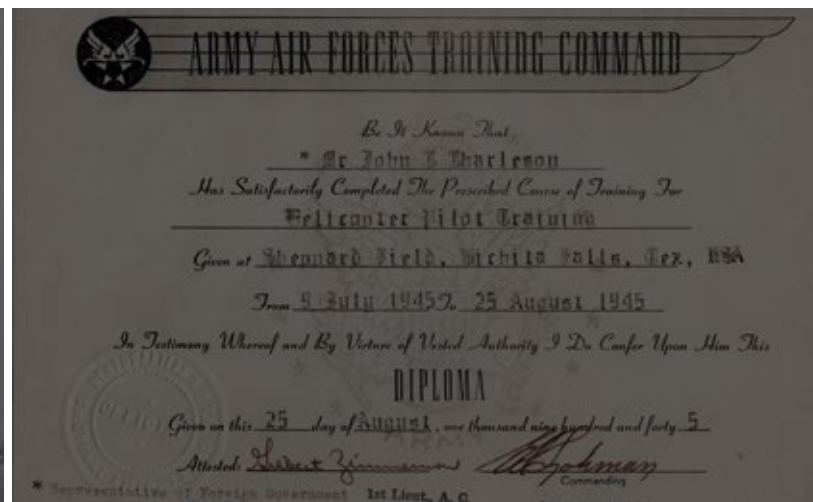 ARMY AIR FORCES TRAINING COMMAND
Be It Known That
* Mr John E Charleson
Has Satisfactorily Completed The Prescribed Course of Training For
Helicopter Pilot Training
Given at Sheppard Field, Wichita Falls, Tex, USA
From 9 July 1945 To 25 August 1945
In Testimony Whereof and By Virture of Vested Authority I Do Confer Upon Him This
DIPLOMA
Given on this 25 day of August, one thousand nine hundred and forty 5
Attested: Zimmerman
Commanding
* Representative of Foreign Government 1st Lieut, A C